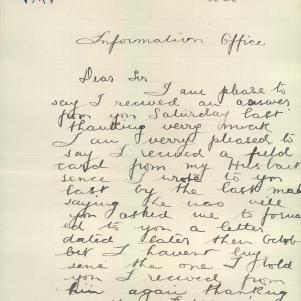 Information Office
Dear Sir
I am please to
say I recived an answer
from you Saturday last
thanking verry much
I am verry pleased to
say I recived a feild
card from my Husbant
sence I wrote to you
last by the last mail
saying he was well
you asked me to forwa
ed to you a letter
dated later then Octob
but I havent any
sence the one I told
you I recived from
him again thanking